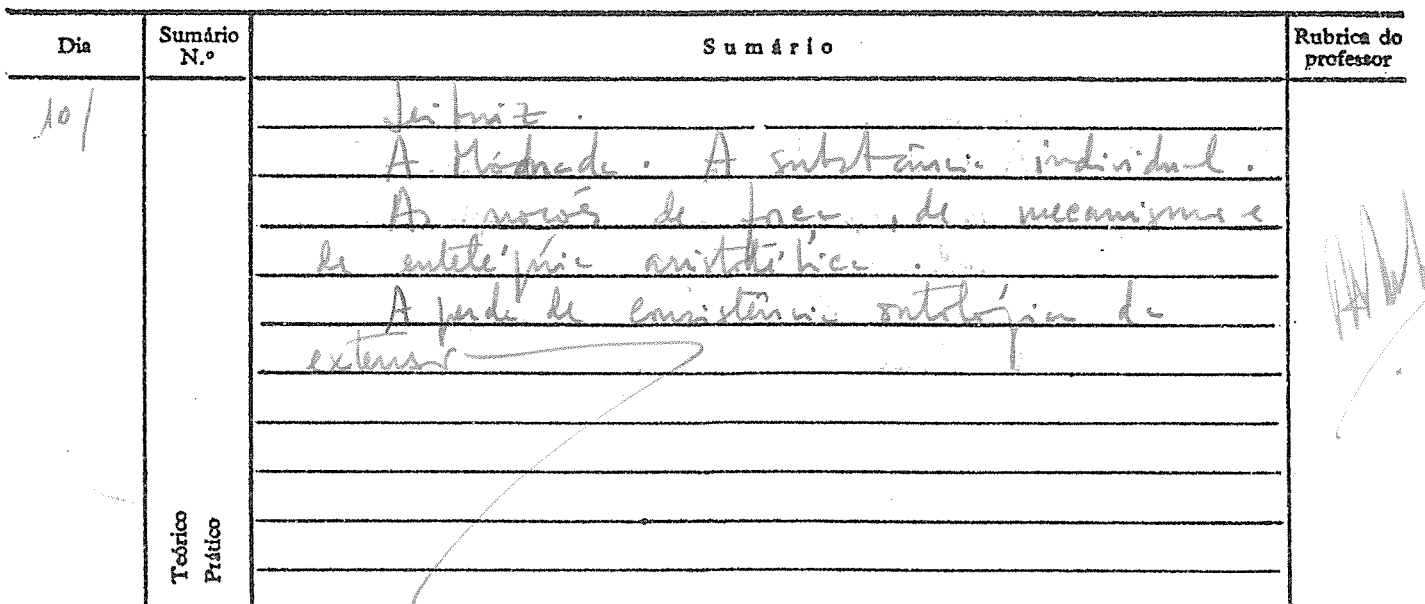 Dia
Sumário
N.º
Sumário
Rubrica do
professor
10/
Leibniz.
A Mónada. A substância individual.
As noções de força, de mecanismo e
de enteléquia aristotélica.
A perda de consistência ontológica da
extensão
Teórico
Prático